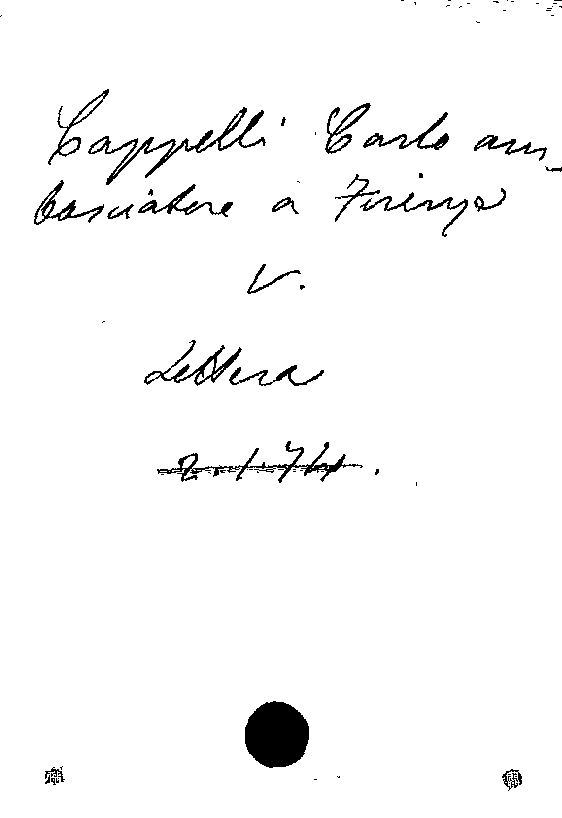 Cappelli Carlo am_
basciatore a Firenze
V.
Lettera
2.1.74.